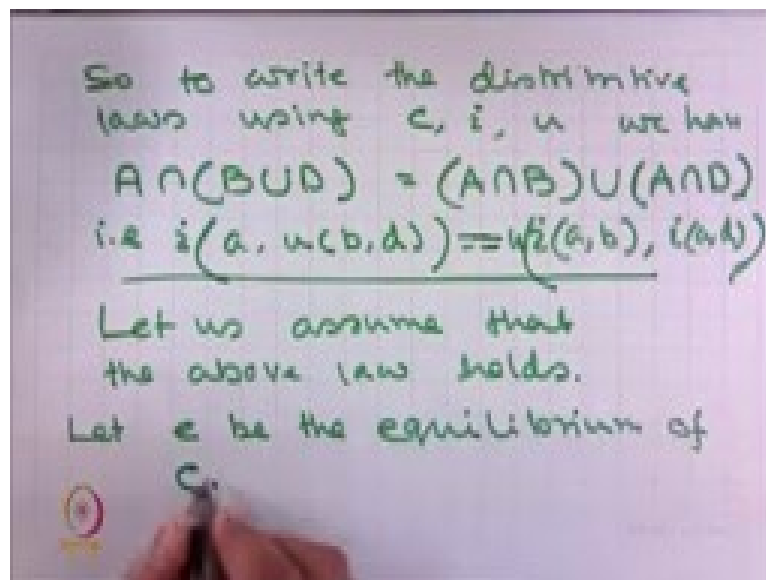 So to write the distributive
laws using c, i, u we have
A∩(B∪D) = (A∩B)∪(A∩D)
i.e i(a, u(b,d)) = u(i(a,b), i(a,d))
Let us assume that
the above law holds.
Let e be the equilibrium of
C.